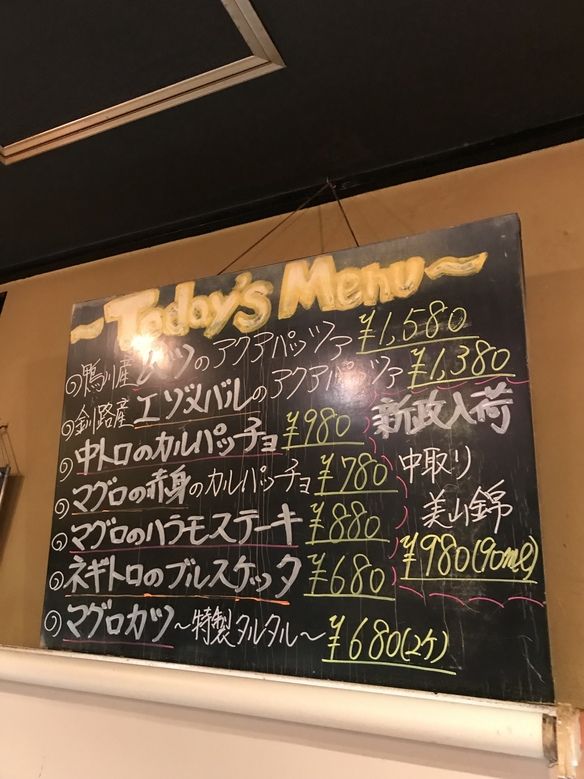 ～Today's Menu～
鴨川産 ムツのアクアパッツァ ¥1,580
釧路産 エゾメバルのアクアパッツァ ¥1,380
中トロのカルパッチョ ¥980
マグロの赤身のカルパッチョ ¥780
マグロのハラモステーキ ¥880
ネギトロのブルスケッタ ¥680
マグロカツ～特製タルタル～ ¥680(2ケ)
新政入荷
中取り
美山錦
¥980(90ml)